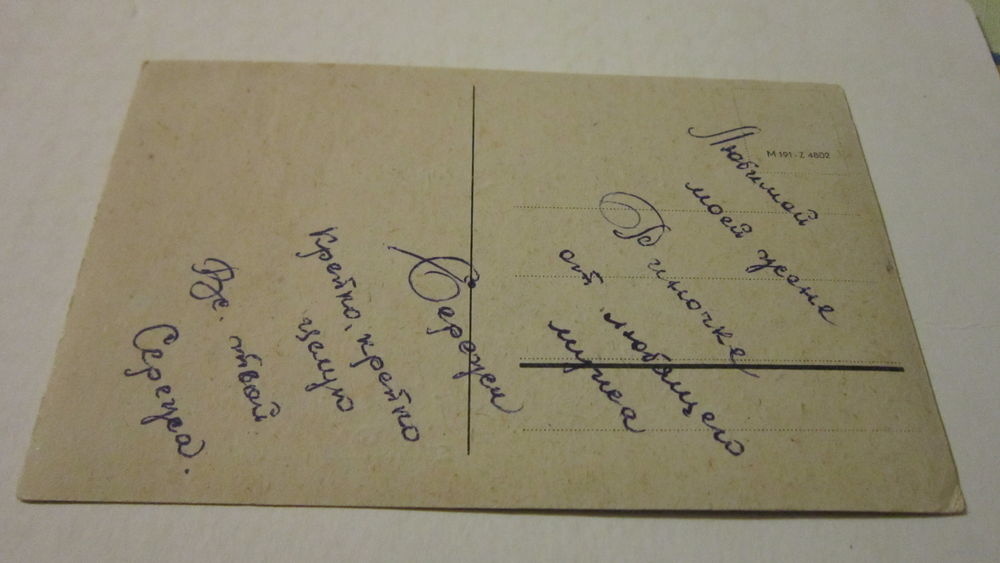 M 191 - Z 4802
Любимой
моей жене
Риночке
от любящего
мужа
Сережи
Крепко, крепко
целую
Вс. твой
Сережа.